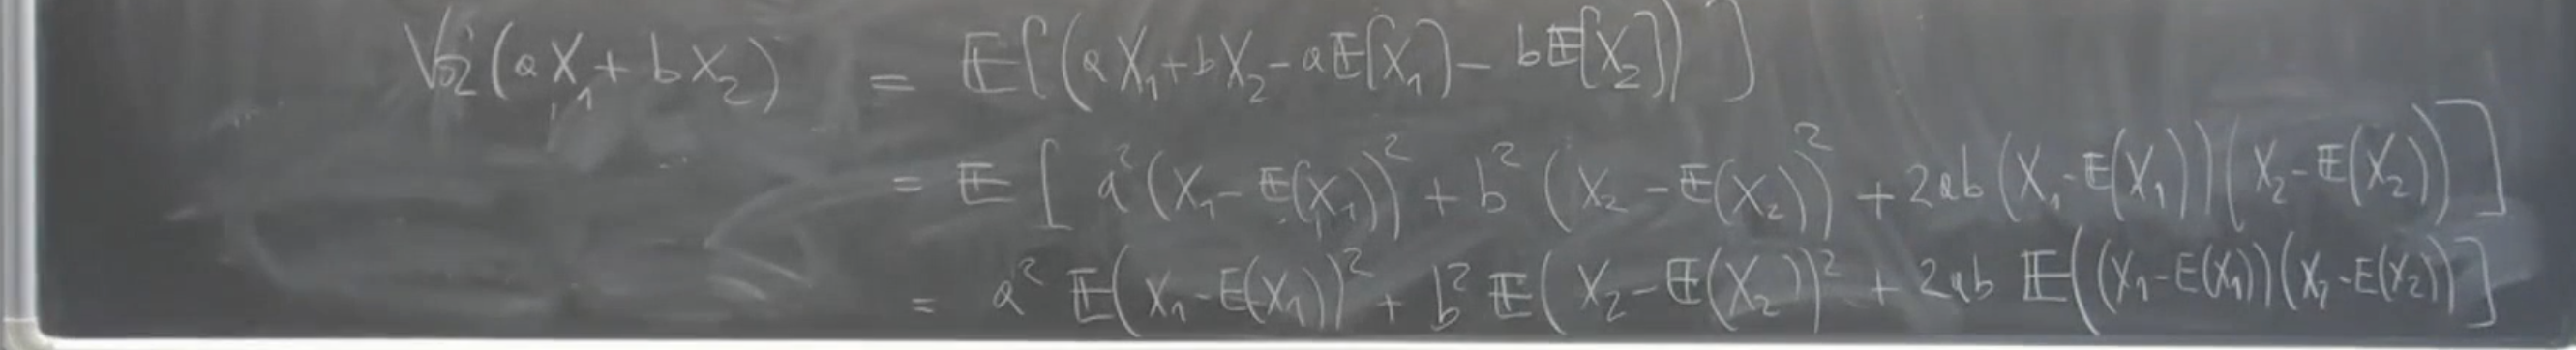 Var(aX₁ + bX₂) = 𝔼[(aX₁+bX₂-a𝔼[X₁)- b𝔼[X₂]) ]
= 𝔼[ a²(X₁- 𝔼(X₁))² + b² (X₂ - 𝔼(X₂))² + 2ab (X₁-𝔼(X₁))(X₂-𝔼(X₂))]
= a² 𝔼(X₁-𝔼(X₁))² + b² 𝔼(X₂-𝔼(X₂))² + 2ab 𝔼((X₁-E(X₁))(X₂-E(X₂))]